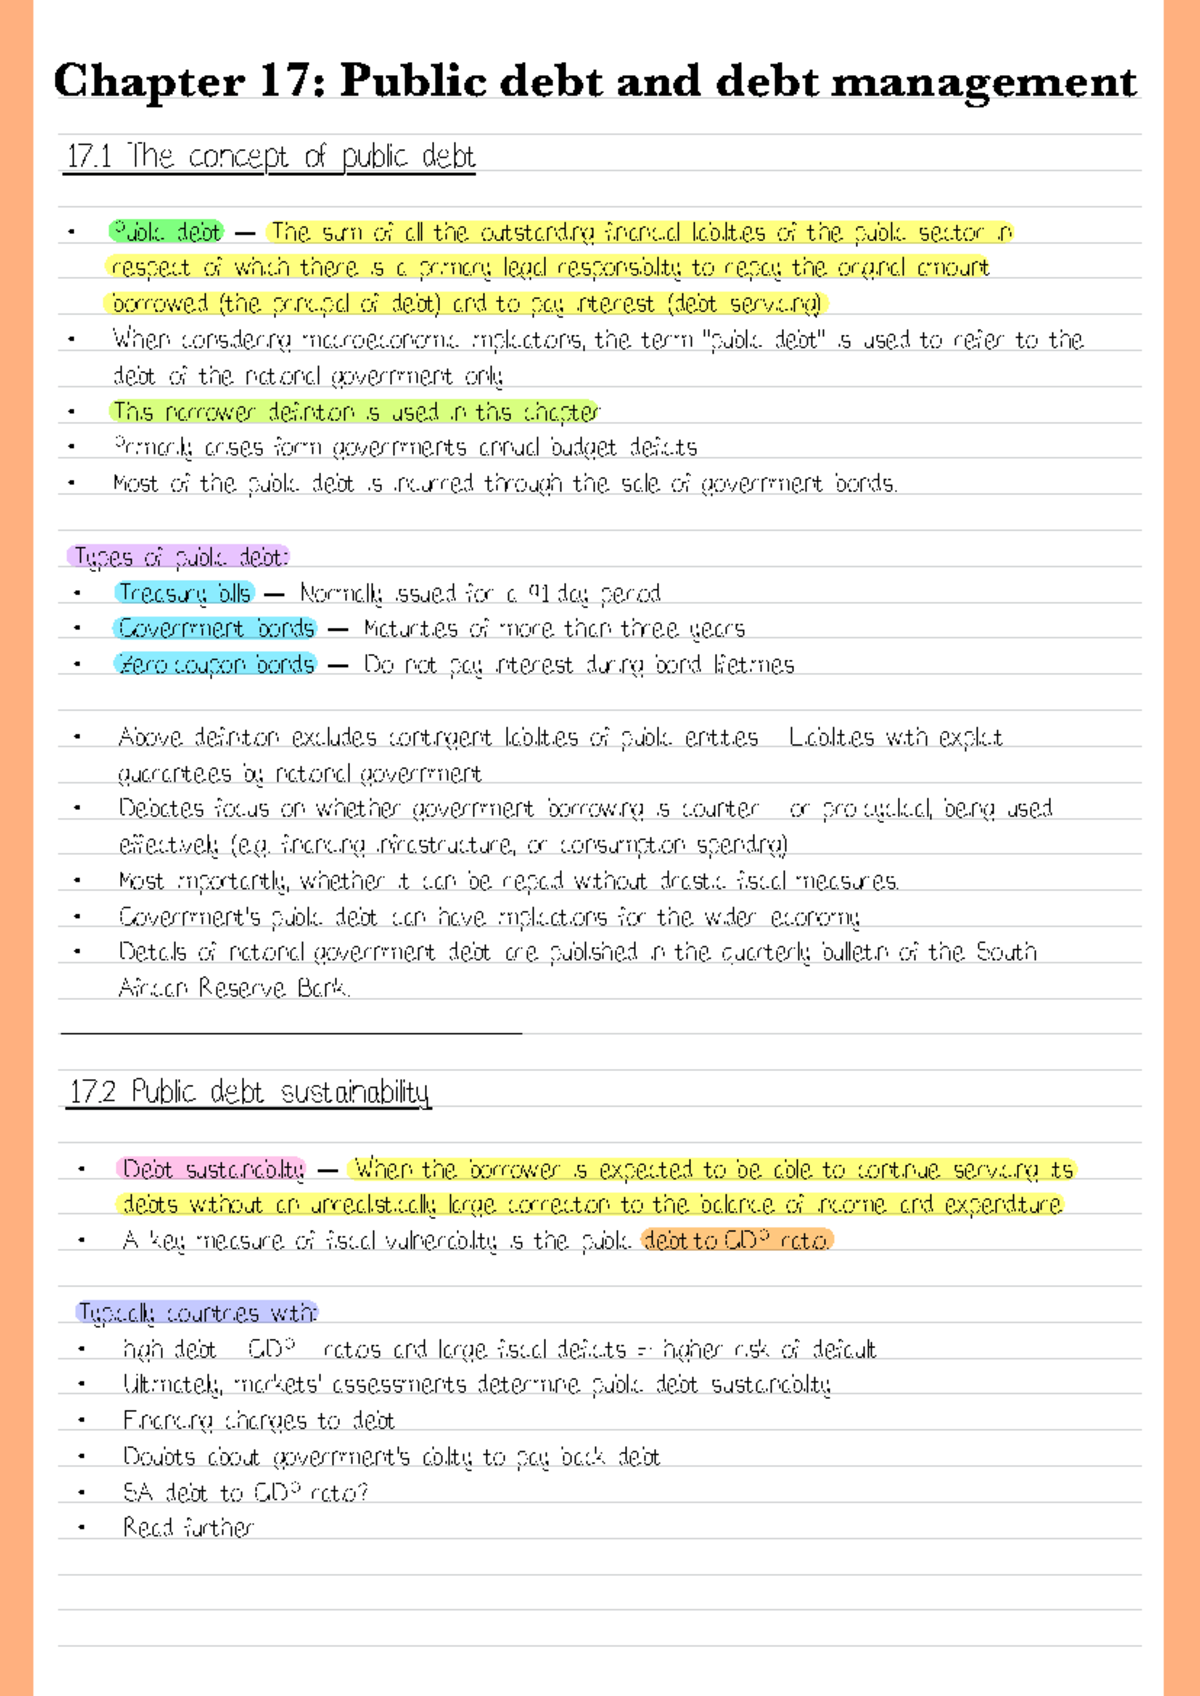 Chapter 17: Public debt and debt management
17.1 The concept of public debt
• Public debt — The sum of all the outstanding financial liabilities of the public sector in
respect of which there is a primary legal responsibility to repay the original amount
borrowed (the principal of debt) and to pay interest (debt servicing)
• When considering macroeconomic implications, the term "public debt" is used to refer to the
debt of the national government only
• This narrower definition is used in this chapter
• Primarily arises form governments annual budget deficits
• Most of the public debt is incurred through the sale of government bonds.
Types of public debt:
• Treasury bills — Normally issued for a 91 day period
• Government bonds — Maturities of more than three years
• Zero coupon bonds — Do not pay interest during bond lifetimes
• Above definition excludes contingent liabilities of public entities Liabilities with explicit
guarantees by national government
• Debates focus on whether government borrowing is counter or pro cyclical, being used
effectively (e.g. financing infrastructure, or consumption spending)
• Most importantly, whether it can be repaid without drastic fiscal measures.
• Government's public debt can have implications for the wider economy
• Details of national government debt are published in the quarterly bulletin of the South
African Reserve Bank.
17.2 Public debt sustainability
• Debt sustainability — When the borrower is expected to be able to continue servicing its
debts without an unrealistically large correction to the balance of income and expenditure
• A key measure of fiscal vulnerability is the public debt to GDP ratio.
Typically countries with:
• high debt GDP ratios and large fiscal deficits = higher risk of default
• Ultimately, markets' assessments determine public debt sustainability
• Financing charges to debt
• Doubts about government's ability to pay back debt
• SA debt to GDP ratio?
• Read further